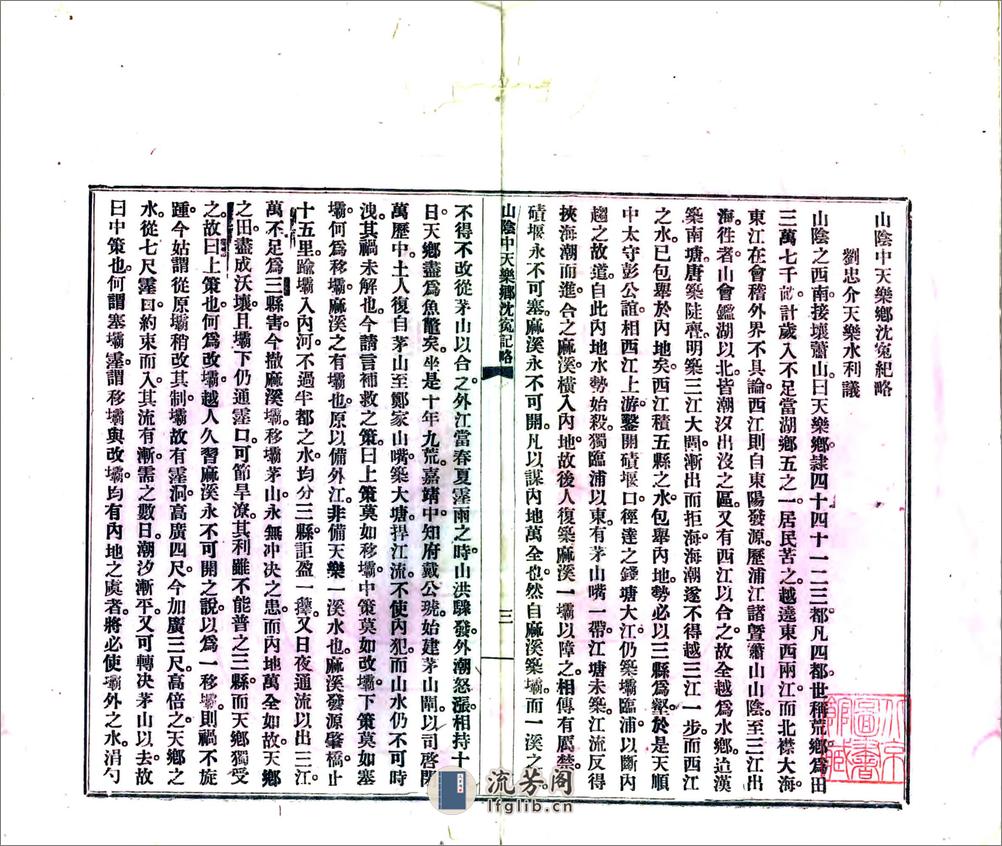 山陰中天樂鄉沈寃紀略
劉忠介天樂水利議
山陰之西南接壤蕭山曰天樂鄉隷四十四十一二三都凡四都世稱荒鄉爲田
三萬七千畝計歲入不足當湖鄉五之一居民苦之越遶東西兩江而北襟大海
東江在會稽外界不具論西江則自東陽發源歷浦江諸曁蕭山山陰至三江出
海徃者山會鑑湖以北皆潮汐出沒之區又有西江以合之故全越爲水鄉迨漢
築南塘唐築陡亹明築三江大閘漸出而拒海海潮遂不得越三江一步而西江
之水已包舉於內地矣西江積五縣之水包舉內地勢必以三縣爲壑於是天順
中太守彭公誼相西江上游鑿開磧堰口徑達之錢塘大江仍築壩臨浦以斷內
趨之故道自此內地水勢始殺獨臨浦以東有茅山嘴一帶江塘未築江流反得
挾海潮而進合之麻溪橫入內地故後人復築麻溪一壩以障之相傳有厲禁
磧堰永不可塞麻溪永不可開凡以謀內地萬全也然自麻溪築壩而一溪之水
山陰中天樂鄉沈寃記略
三
不得不改從茅山以合之外江當春夏霪雨之時山洪驟發外潮怒漲相持十餘
日天鄉盡爲魚鼈矣坐是十年九荒嘉靖中知府戴公琥始建茅山閘以司啓閉
萬歷中土人復自茅山至鄭家山嘴築大塘捍江流不使內犯而山水仍不可時
洩其禍未解也今請言補救之策曰上策莫如移壩中策莫如改壩下策莫如塞
壩何爲移壩麻溪之有壩也原以備外江非備天樂一溪水也麻溪發源肇橋止
十五里踰壩入內河不過半都之水均分三縣詎盈一篠又日夜通流以出三江
萬不足爲三縣害今撤麻溪壩移壩茅山永無冲決之患而內地萬全如故天鄉
之田盡成沃壤且壩下仍通霪口可節旱潦其利雖不能普之三縣而天鄉獨受
之故曰上策也何爲改壩越人久習麻溪永不可開之說以爲一移壩則禍不旋
踵今姑謂從原壩稍改其制壩故有霪洞高廣四尺今加廣三尺高倍之天鄉之
水從七尺霪曰約束而入其流有漸需之數日潮汐漸平又可轉決茅山以去故
曰中策也何謂塞壩霪謂移壩與改壩均有內地之虞者將必使壩外之水涓勺
流芳阁
lfglib.cn